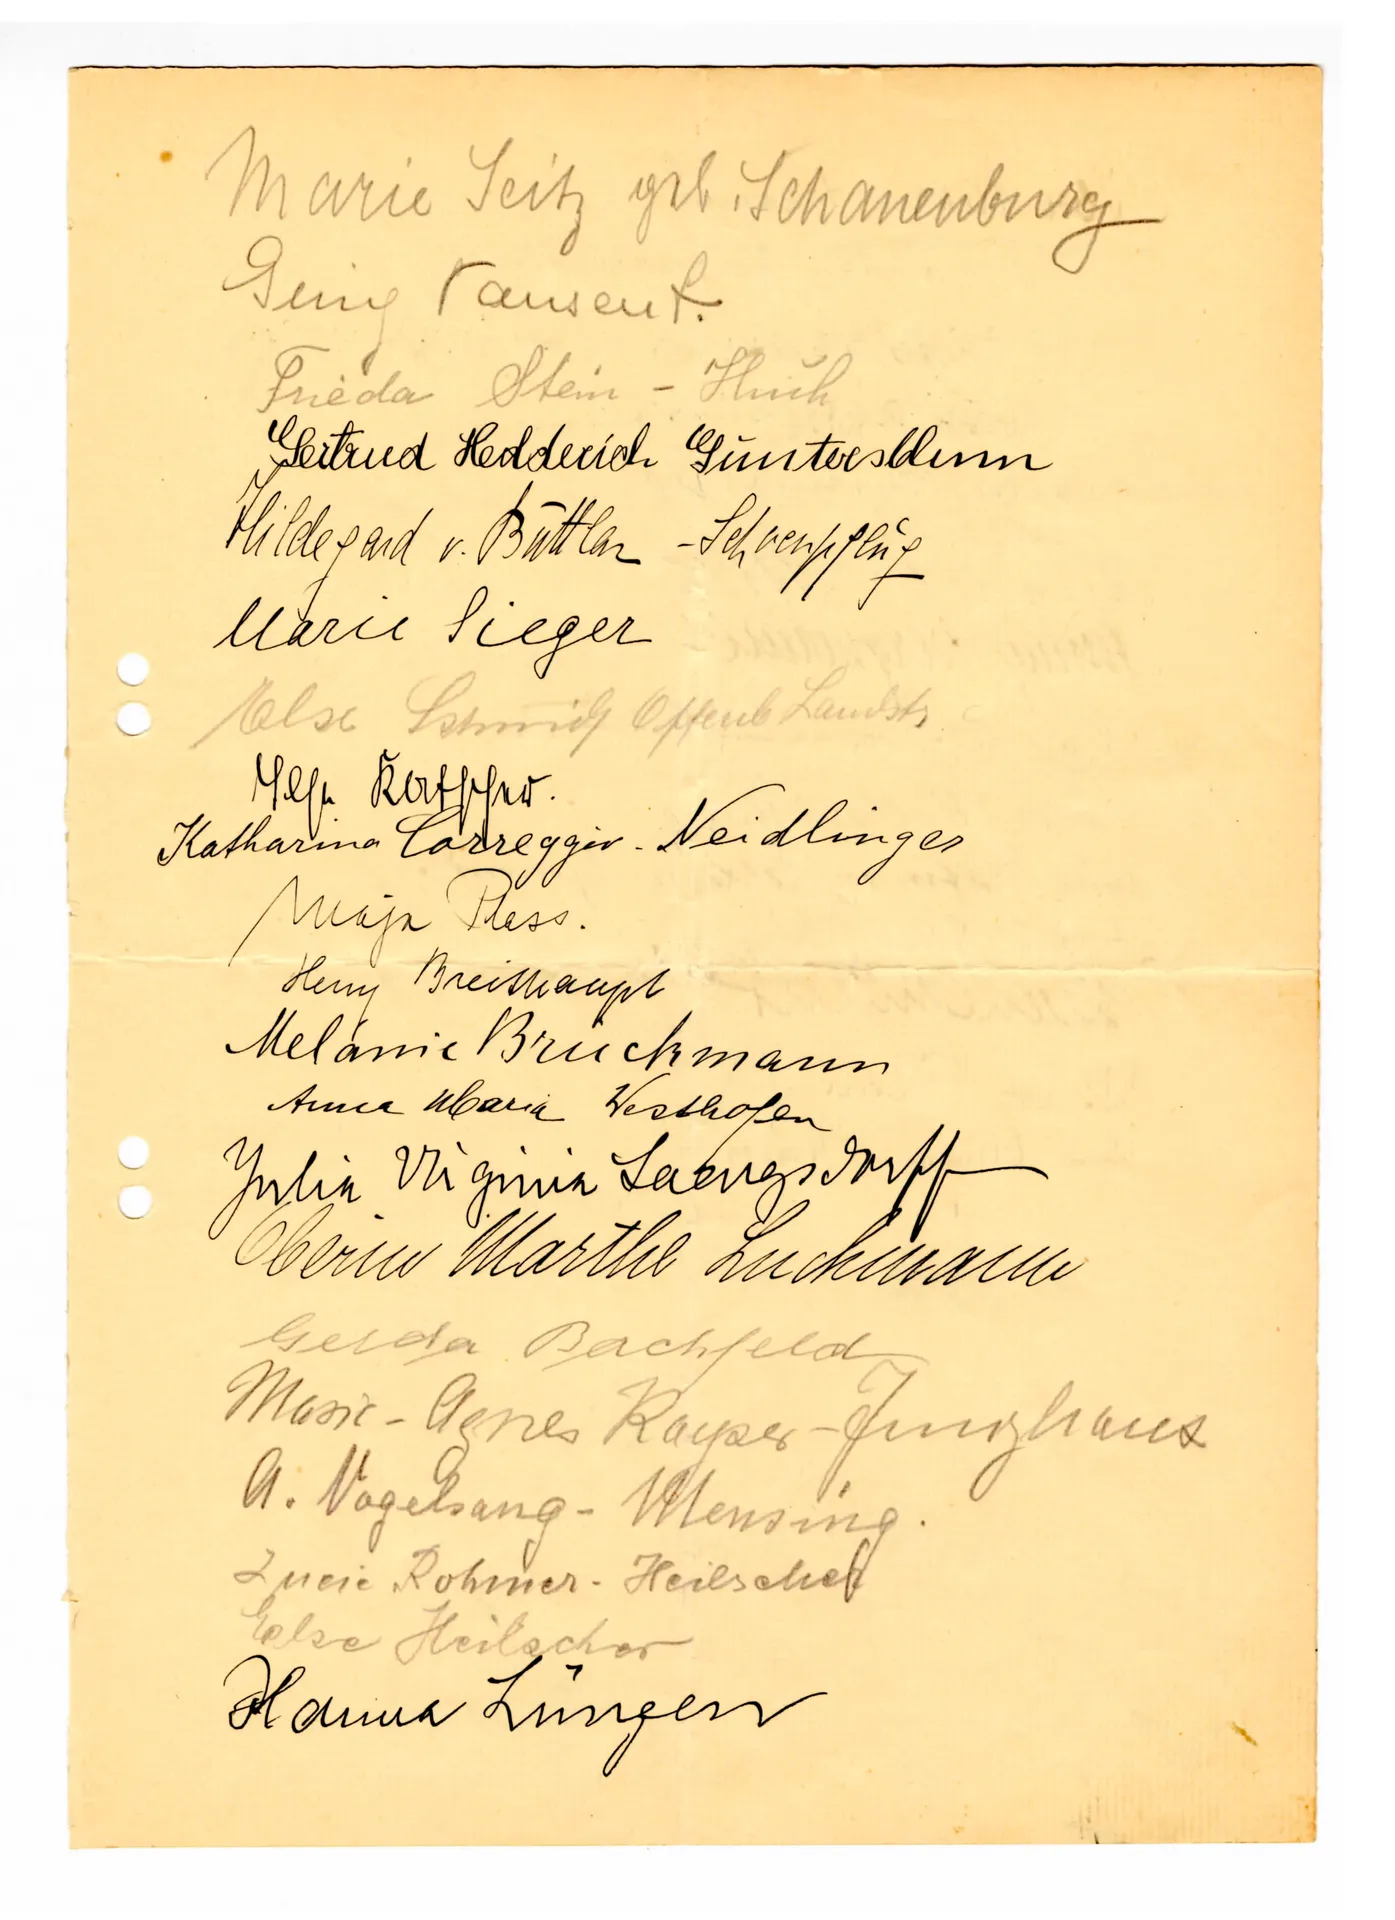 Marie Seitz geb. Schanenburg
Frieda Stein - Huch
Gertrud Hedderich Guntersblum
Hildegard v. Buttlar - Schoenpflug
Marie Sieger
Else Schmidt Offenb Landstr
Katharina Correggio - Neidlinger
Maja Pless.
Henny Breithaupt
Melanie Bruckmann
Anna Maria Westhofen
Julia Virginia Laengsdorff
Oberin Marthe Luckmann
Gerda Bachfeld
Marie - Agnes Kayser - Junghans
A. Vogelsang - Mensing.
Lucie Rohmer - Heilscher
Else Heilscher
Hanna Lüngen